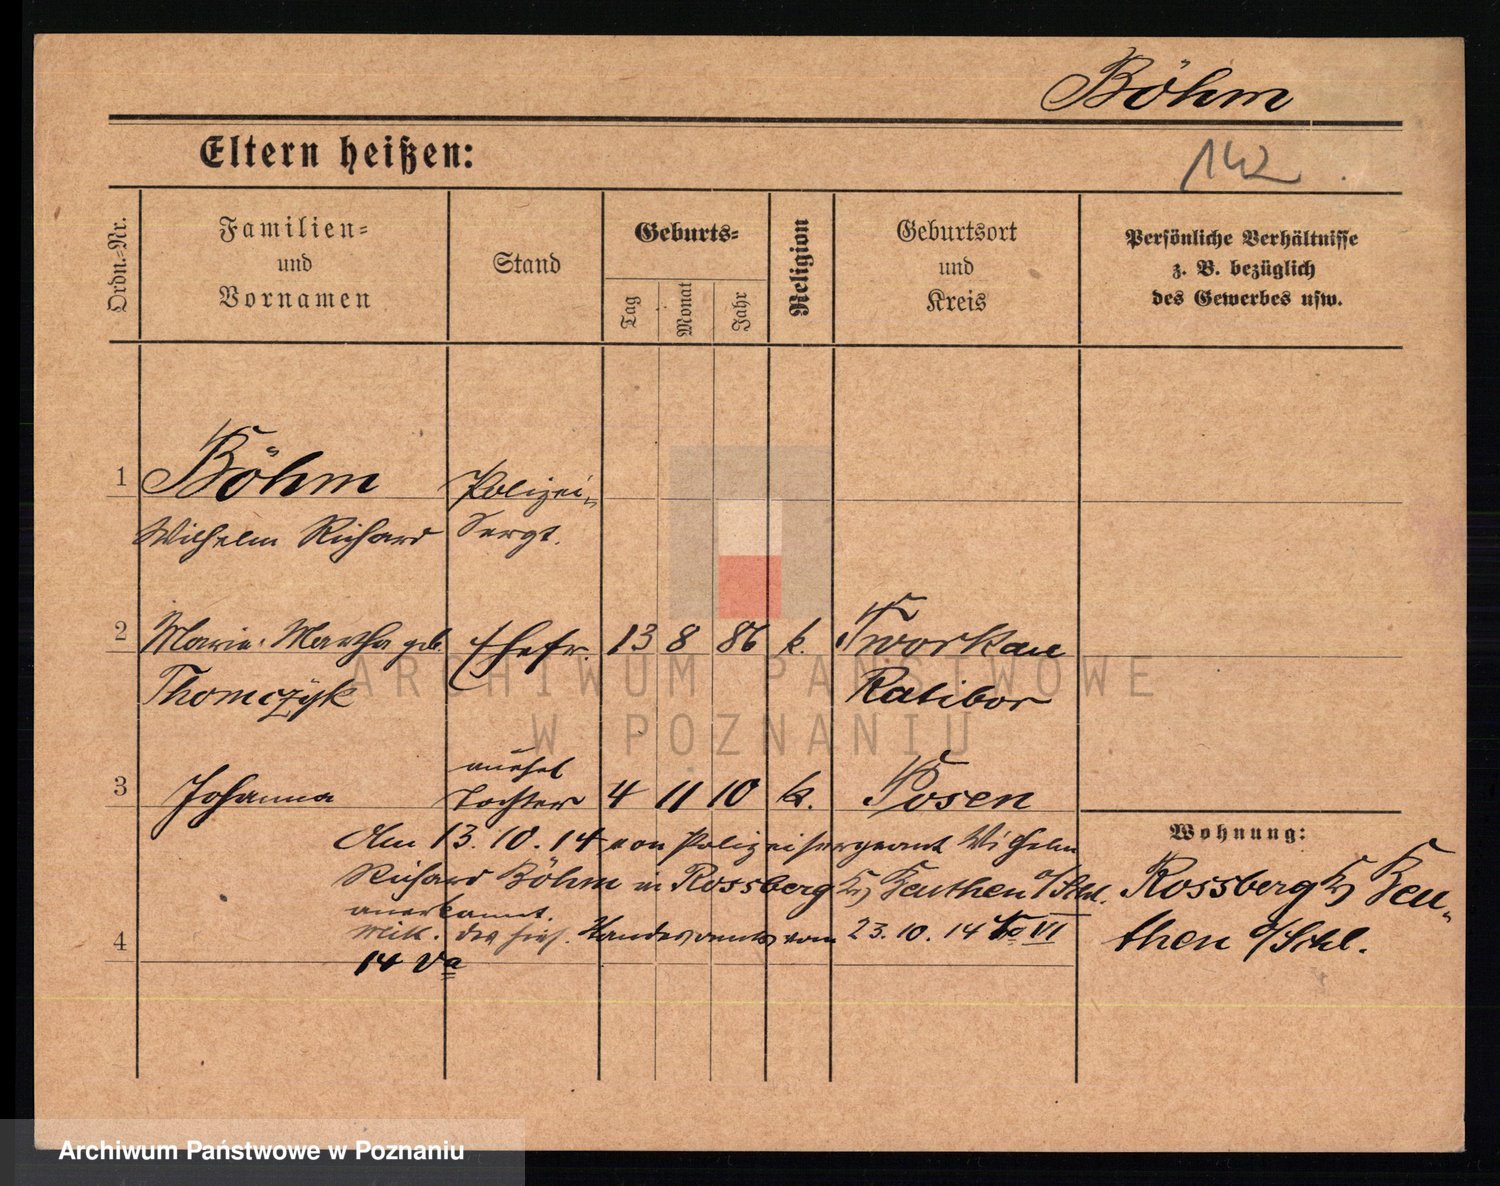 Böhm
Eltern heißen:
142
Ordn.-Nr.
Familien-
und
Vornamen
Stand
Geburts-
Tag
Monat
Jahr
Religion
Geburtsort
und
Kreis
Persönliche Verhältnisse
z. B. bezüglich
des Gewerbes usw.
1 Böhm Polizei-
Wilhelm Richard Sergt.
2 Marie Martha geb. Ehefr. 13 8 86 k. Tworkau
Thomczyk Ratibor
ARCHIWUM PAŃSTWOWE
W POZNANIU
außehel
3 Johanna Tochter 4 11 10 k. Posen
Am 13.10.14 von Polizeisergeant Wilhelm
Richard Böhm in Rossberg Kr Beuthen o/Schl.
anerkannt.
4 Mitt. des hies. Standesamts vom 23.10.14 VI
14 Va
Wohnung:
Rossberg Kr Beu-
then o/Schl.
Archiwum Państwowe w Poznaniu